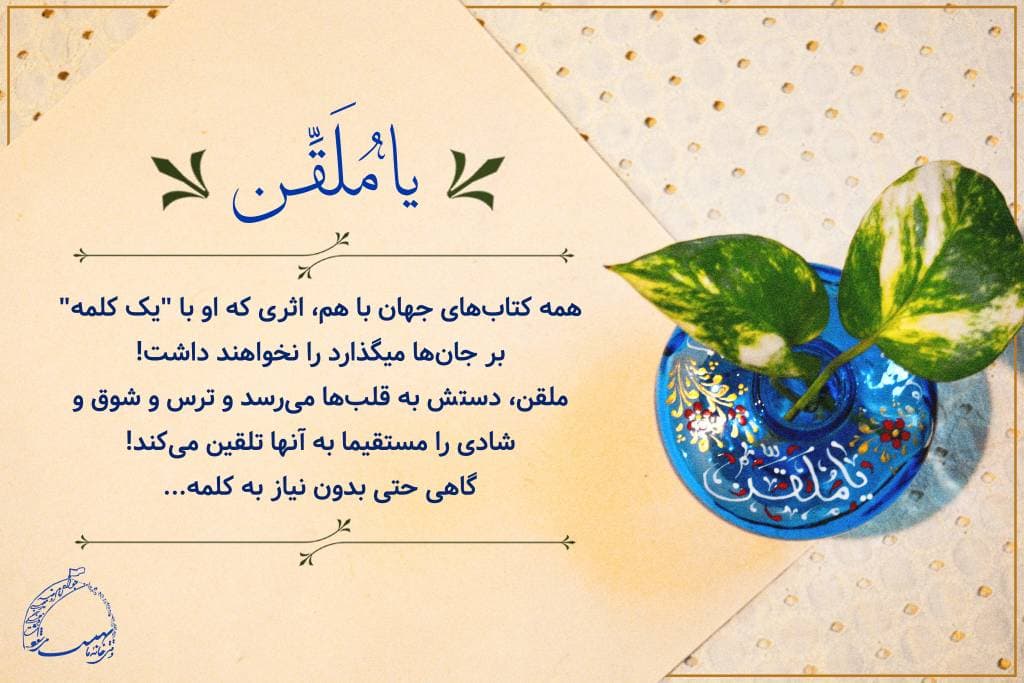 یا مُلَقِّن
همه کتاب‌های جهان با هم، اثری که او با "یک کلمه"
بر جان‌ها میگذارد را نخواهند داشت!
ملقن، دستش به قلب‌ها می‌رسد و ترس و شوق و
شادی را مستقیما به آنها تلقین می‌کند!
گاهی حتی بدون نیاز به کلمه...
یا مُلَقِّن